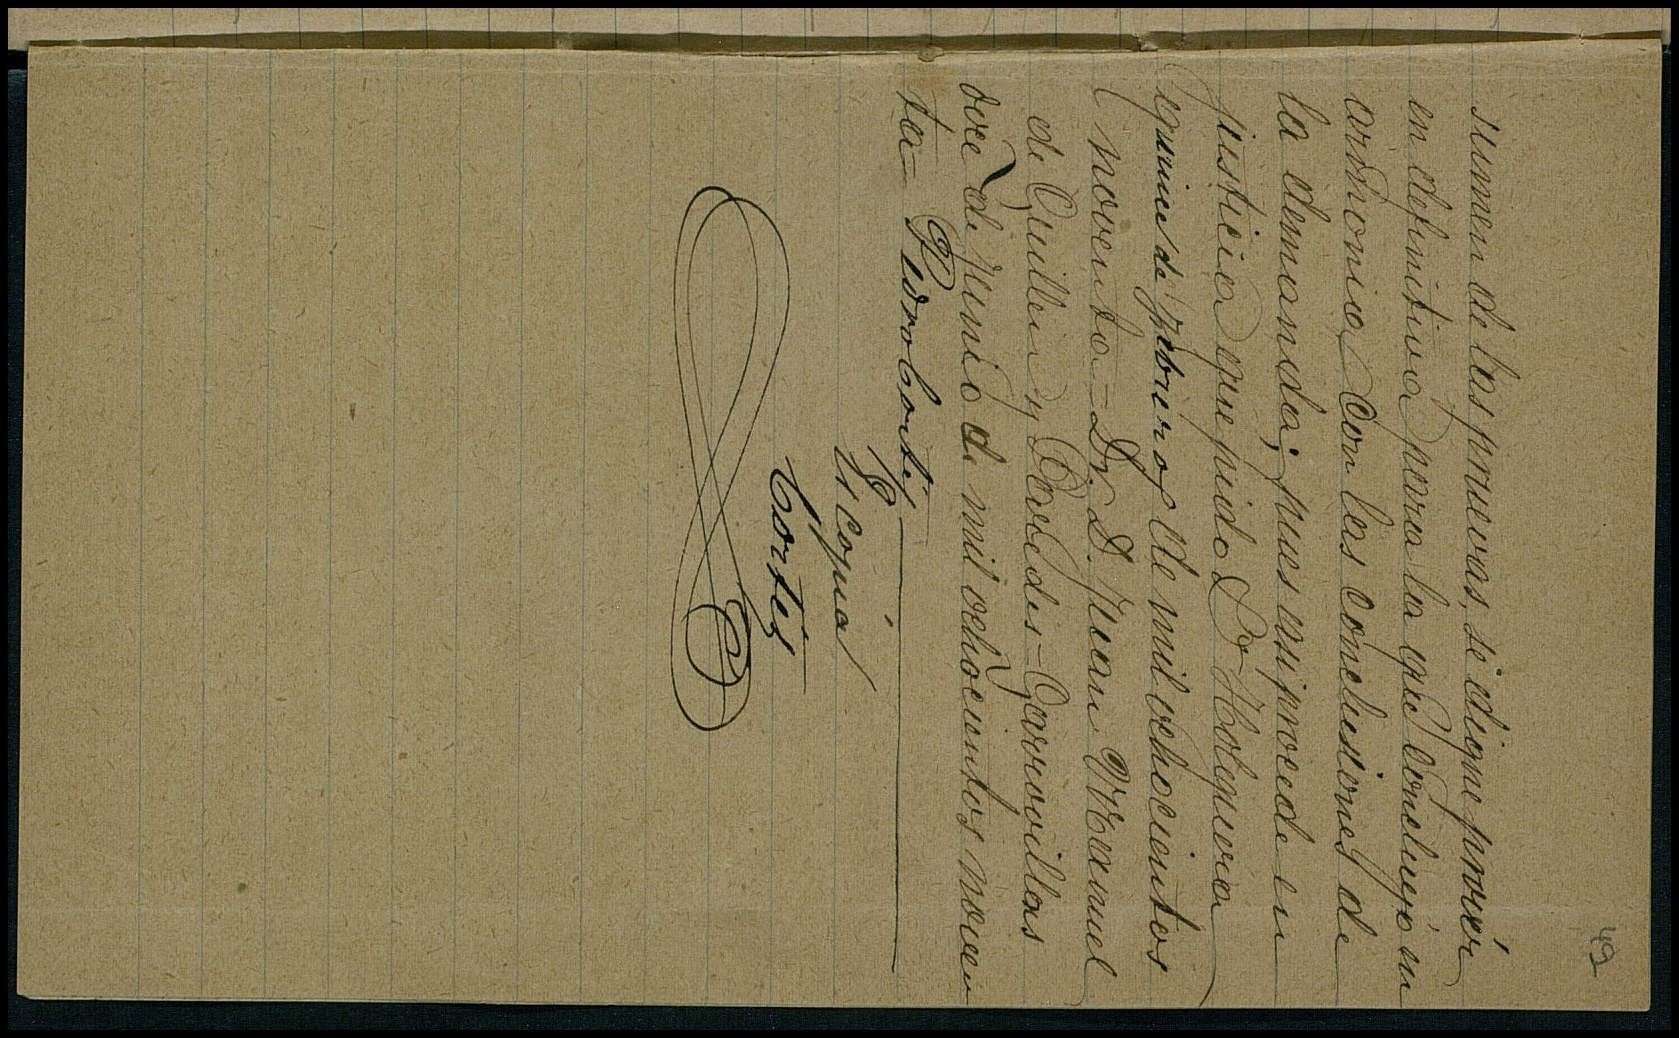 49
sumen de las pruevas, se digne proveér
en definitiva para la que concluyo en
armonia con las conclusiones de
la demanda; pues asi procede en
justicia que pido Dr Holguera
quince de febrero de mil ochocientos
noventa = Dr. D. Juan Manuel
de Guillen y Paredes = Garrovillas
doce de junio de mil ochocientos noven
ta =
Es copia
Cortés